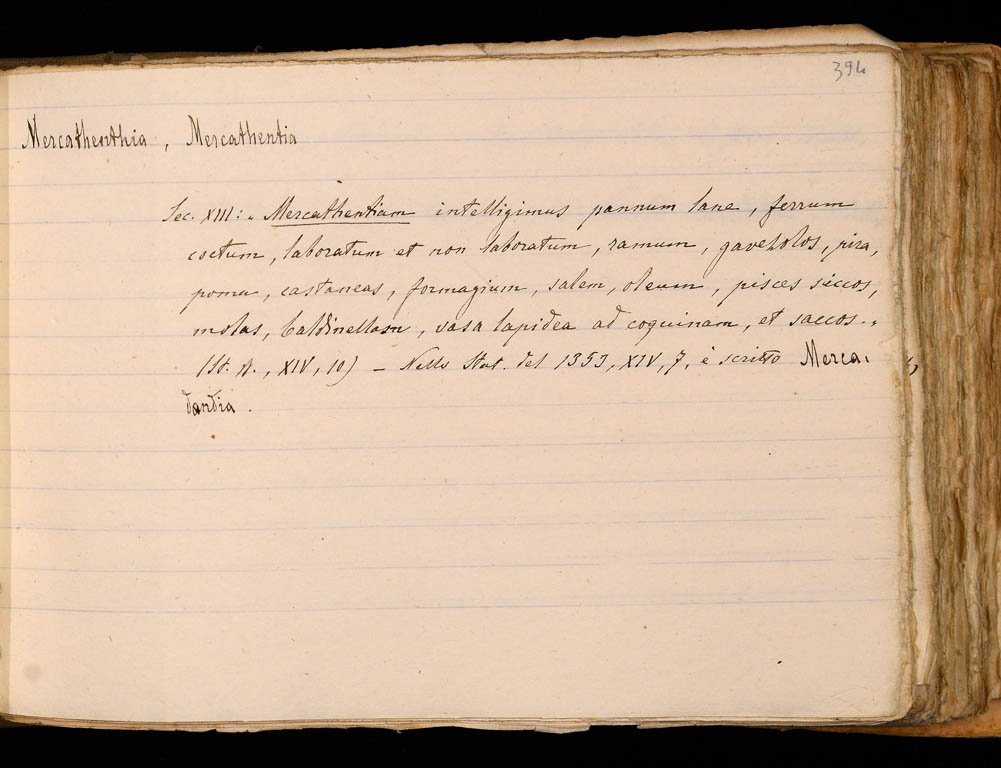 394
Mercathenthia, Mercathentia
Sec. XIII: „ Mercathentiam intelligimus pannum lane, ferrum
coctum, laboratum et non laboratum, ramum, gavetolos, pira,
poma, castaneas, formagium, salem, oleum, pisces siccos,
molas, baldinellam, vasa lapidea ad coquinam, et saccos. „
(St. A., XIV, 10) — Nello Stat. del 1353, XIV, 7, è scritto Merca-
dandia.